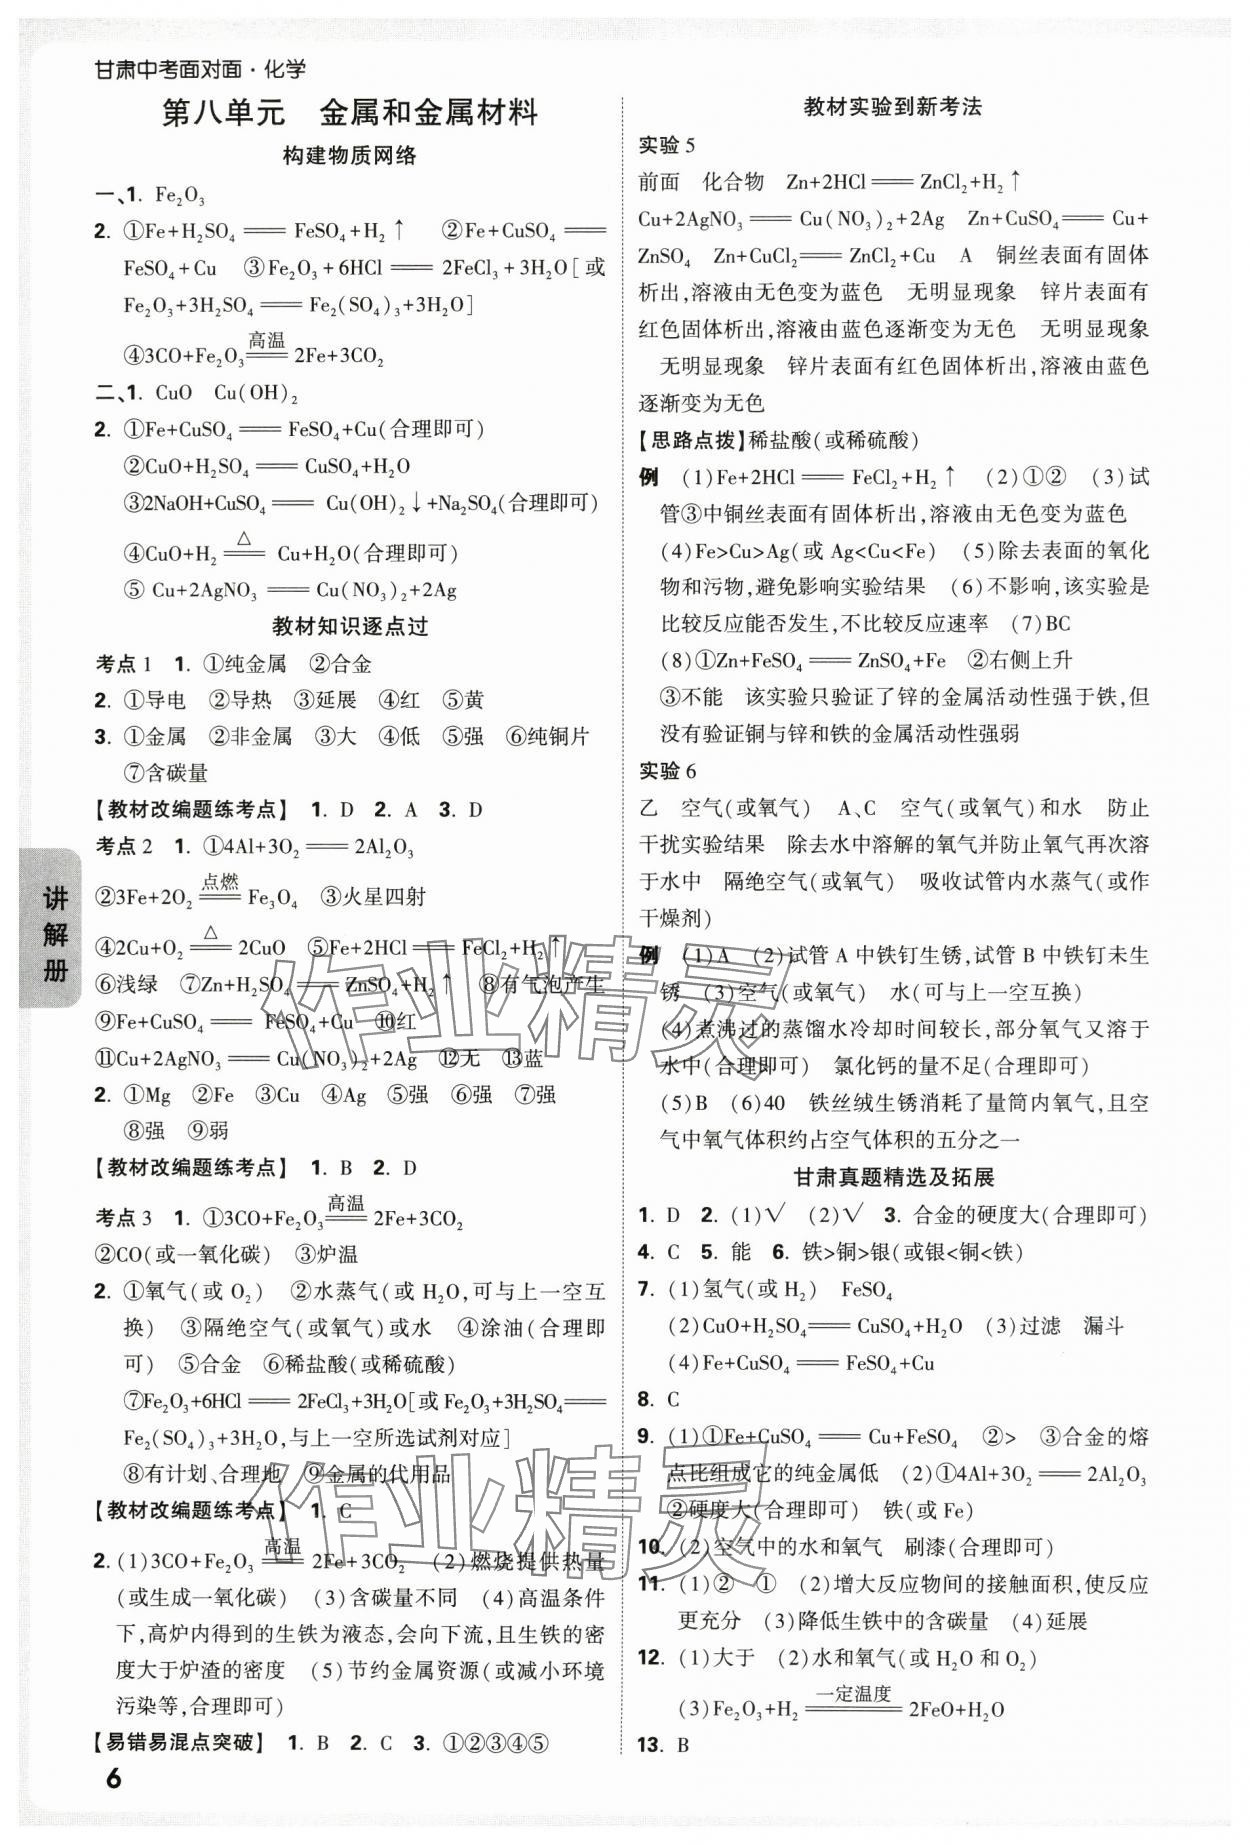 甘肃中考面对面·化学
第八单元　金属和金属材料
构建物质网络
一、1. Fe₂O₃
2. ①Fe+H₂SO₄ == FeSO₄+H₂↑　②Fe+CuSO₄ ==
FeSO₄+Cu　③Fe₂O₃+6HCl == 2FeCl₃+3H₂O[或
Fe₂O₃+3H₂SO₄ == Fe₂(SO₄)₃+3H₂O]
④3CO+Fe₂O₃ =高温= 2Fe+3CO₂
二、1. CuO　Cu(OH)₂
2. ①Fe+CuSO₄ == FeSO₄+Cu(合理即可)
②CuO+H₂SO₄ == CuSO₄+H₂O
③2NaOH+CuSO₄ == Cu(OH)₂↓+Na₂SO₄(合理即可)
④CuO+H₂ =△= Cu+H₂O(合理即可)
⑤ Cu+2AgNO₃ == Cu(NO₃)₂+2Ag
教材知识逐点过
考点 1　1. ①纯金属　②合金
2. ①导电　②导热　③延展　④红　⑤黄
3. ①金属　②非金属　③大　④低　⑤强　⑥纯铜片
⑦含碳量
【教材改编题练考点】　1. D　2. A　3. D
考点 2　1. ①4Al+3O₂ == 2Al₂O₃
②3Fe+2O₂ =点燃= Fe₃O₄　③火星四射
④2Cu+O₂ =△= 2CuO　⑤Fe+2HCl == FeCl₂+H₂↑
⑥浅绿　⑦Zn+H₂SO₄ == ZnSO₄+H₂↑　⑧有气泡产生
⑨Fe+CuSO₄ == FeSO₄+Cu　⑩红
⑪Cu+2AgNO₃ == Cu(NO₃)₂+2Ag　⑫无　⑬蓝
2. ①Mg　②Fe　③Cu　④Ag　⑤强　⑥强　⑦强
⑧强　⑨弱
【教材改编题练考点】　1. B　2. D
考点 3　1. ①3CO+Fe₂O₃ =高温= 2Fe+3CO₂
②CO(或一氧化碳)　③炉温
2. ①氧气(或 O₂)　②水蒸气(或 H₂O,可与上一空互
换)　③隔绝空气(或氧气)或水　④涂油(合理即
可)　⑤合金　⑥稀盐酸(或稀硫酸)
⑦Fe₂O₃+6HCl == 2FeCl₃+3H₂O[或 Fe₂O₃+3H₂SO₄ ==
Fe₂(SO₄)₃+3H₂O,与上一空所选试剂对应]
⑧有计划、合理地　⑨金属的代用品
【教材改编题练考点】　1. C
2. (1)3CO+Fe₂O₃ =高温= 2Fe+3CO₂　(2)燃烧提供热量
(或生成一氧化碳)　(3)含碳量不同　(4)高温条件
下,高炉内得到的生铁为液态,会向下流,且生铁的密
度大于炉渣的密度　(5)节约金属资源(或减小环境
污染等,合理即可)
【易错易混点突破】　1. B　2. C　3. ①②③④⑤
讲解册
6
教材实验到新考法
实验 5
前面　化合物　Zn+2HCl == ZnCl₂+H₂↑
Cu+2AgNO₃ == Cu(NO₃)₂+2Ag　Zn+CuSO₄ == Cu+
ZnSO₄　Zn+CuCl₂ == ZnCl₂+Cu　A　铜丝表面有固体
析出,溶液由无色变为蓝色　无明显现象　锌片表面有
红色固体析出,溶液由蓝色逐渐变为无色　无明显现象
无明显现象　锌片表面有红色固体析出,溶液由蓝色
逐渐变为无色
【思路点拨】稀盐酸(或稀硫酸)
例　(1)Fe+2HCl == FeCl₂+H₂↑　(2)①②　(3)试
管③中铜丝表面有固体析出,溶液由无色变为蓝色
(4)Fe>Cu>Ag(或 Ag<Cu<Fe)　(5)除去表面的氧化
物和污物,避免影响实验结果　(6)不影响,该实验是
比较反应能否发生,不比较反应速率　(7)BC
(8)①Zn+FeSO₄ == ZnSO₄+Fe　②右侧上升
③不能　该实验只验证了锌的金属活动性强于铁,但
没有验证铜与锌和铁的金属活动性强弱
实验 6
乙　空气(或氧气)　A、C　空气(或氧气)和水　防止
干扰实验结果　除去水中溶解的氧气并防止氧气再次溶
于水中　隔绝空气(或氧气)　吸收试管内水蒸气(或作
干燥剂)
例　(1)A　(2)试管 A 中铁钉生锈,试管 B 中铁钉未生
锈　(3)空气(或氧气)　水(可与上一空互换)
(4)煮沸过的蒸馏水冷却时间较长,部分氧气又溶于
水中(合理即可)　氯化钙的量不足(合理即可)
(5)B　(6)40　铁丝绒生锈消耗了量筒内氧气,且空
气中氧气体积约占空气体积的五分之一
甘肃真题精选及拓展
1. D　2. (1)√　(2)√　3. 合金的硬度大(合理即可)
4. C　5. 能　6. 铁>铜>银(或银<铜<铁)
7. (1)氢气(或 H₂)　FeSO₄
(2)CuO+H₂SO₄ == CuSO₄+H₂O　(3)过滤　漏斗
(4)Fe+CuSO₄ == FeSO₄+Cu
8. C
9. (1)①Fe+CuSO₄ == Cu+FeSO₄　②>　③合金的熔
点比组成它的纯金属低　(2)①4Al+3O₂ == 2Al₂O₃
②硬度大(合理即可)　铁(或 Fe)
10. (2)空气中的水和氧气　刷漆(合理即可)
11. (1)②　①　(2)增大反应物间的接触面积,使反应
更充分　(3)降低生铁中的含碳量　(4)延展
12. (1)大于　(2)水和氧气(或 H₂O 和 O₂)
(3)Fe₂O₃+H₂ =一定温度= 2FeO+H₂O
13. B
作业精灵
作业精灵